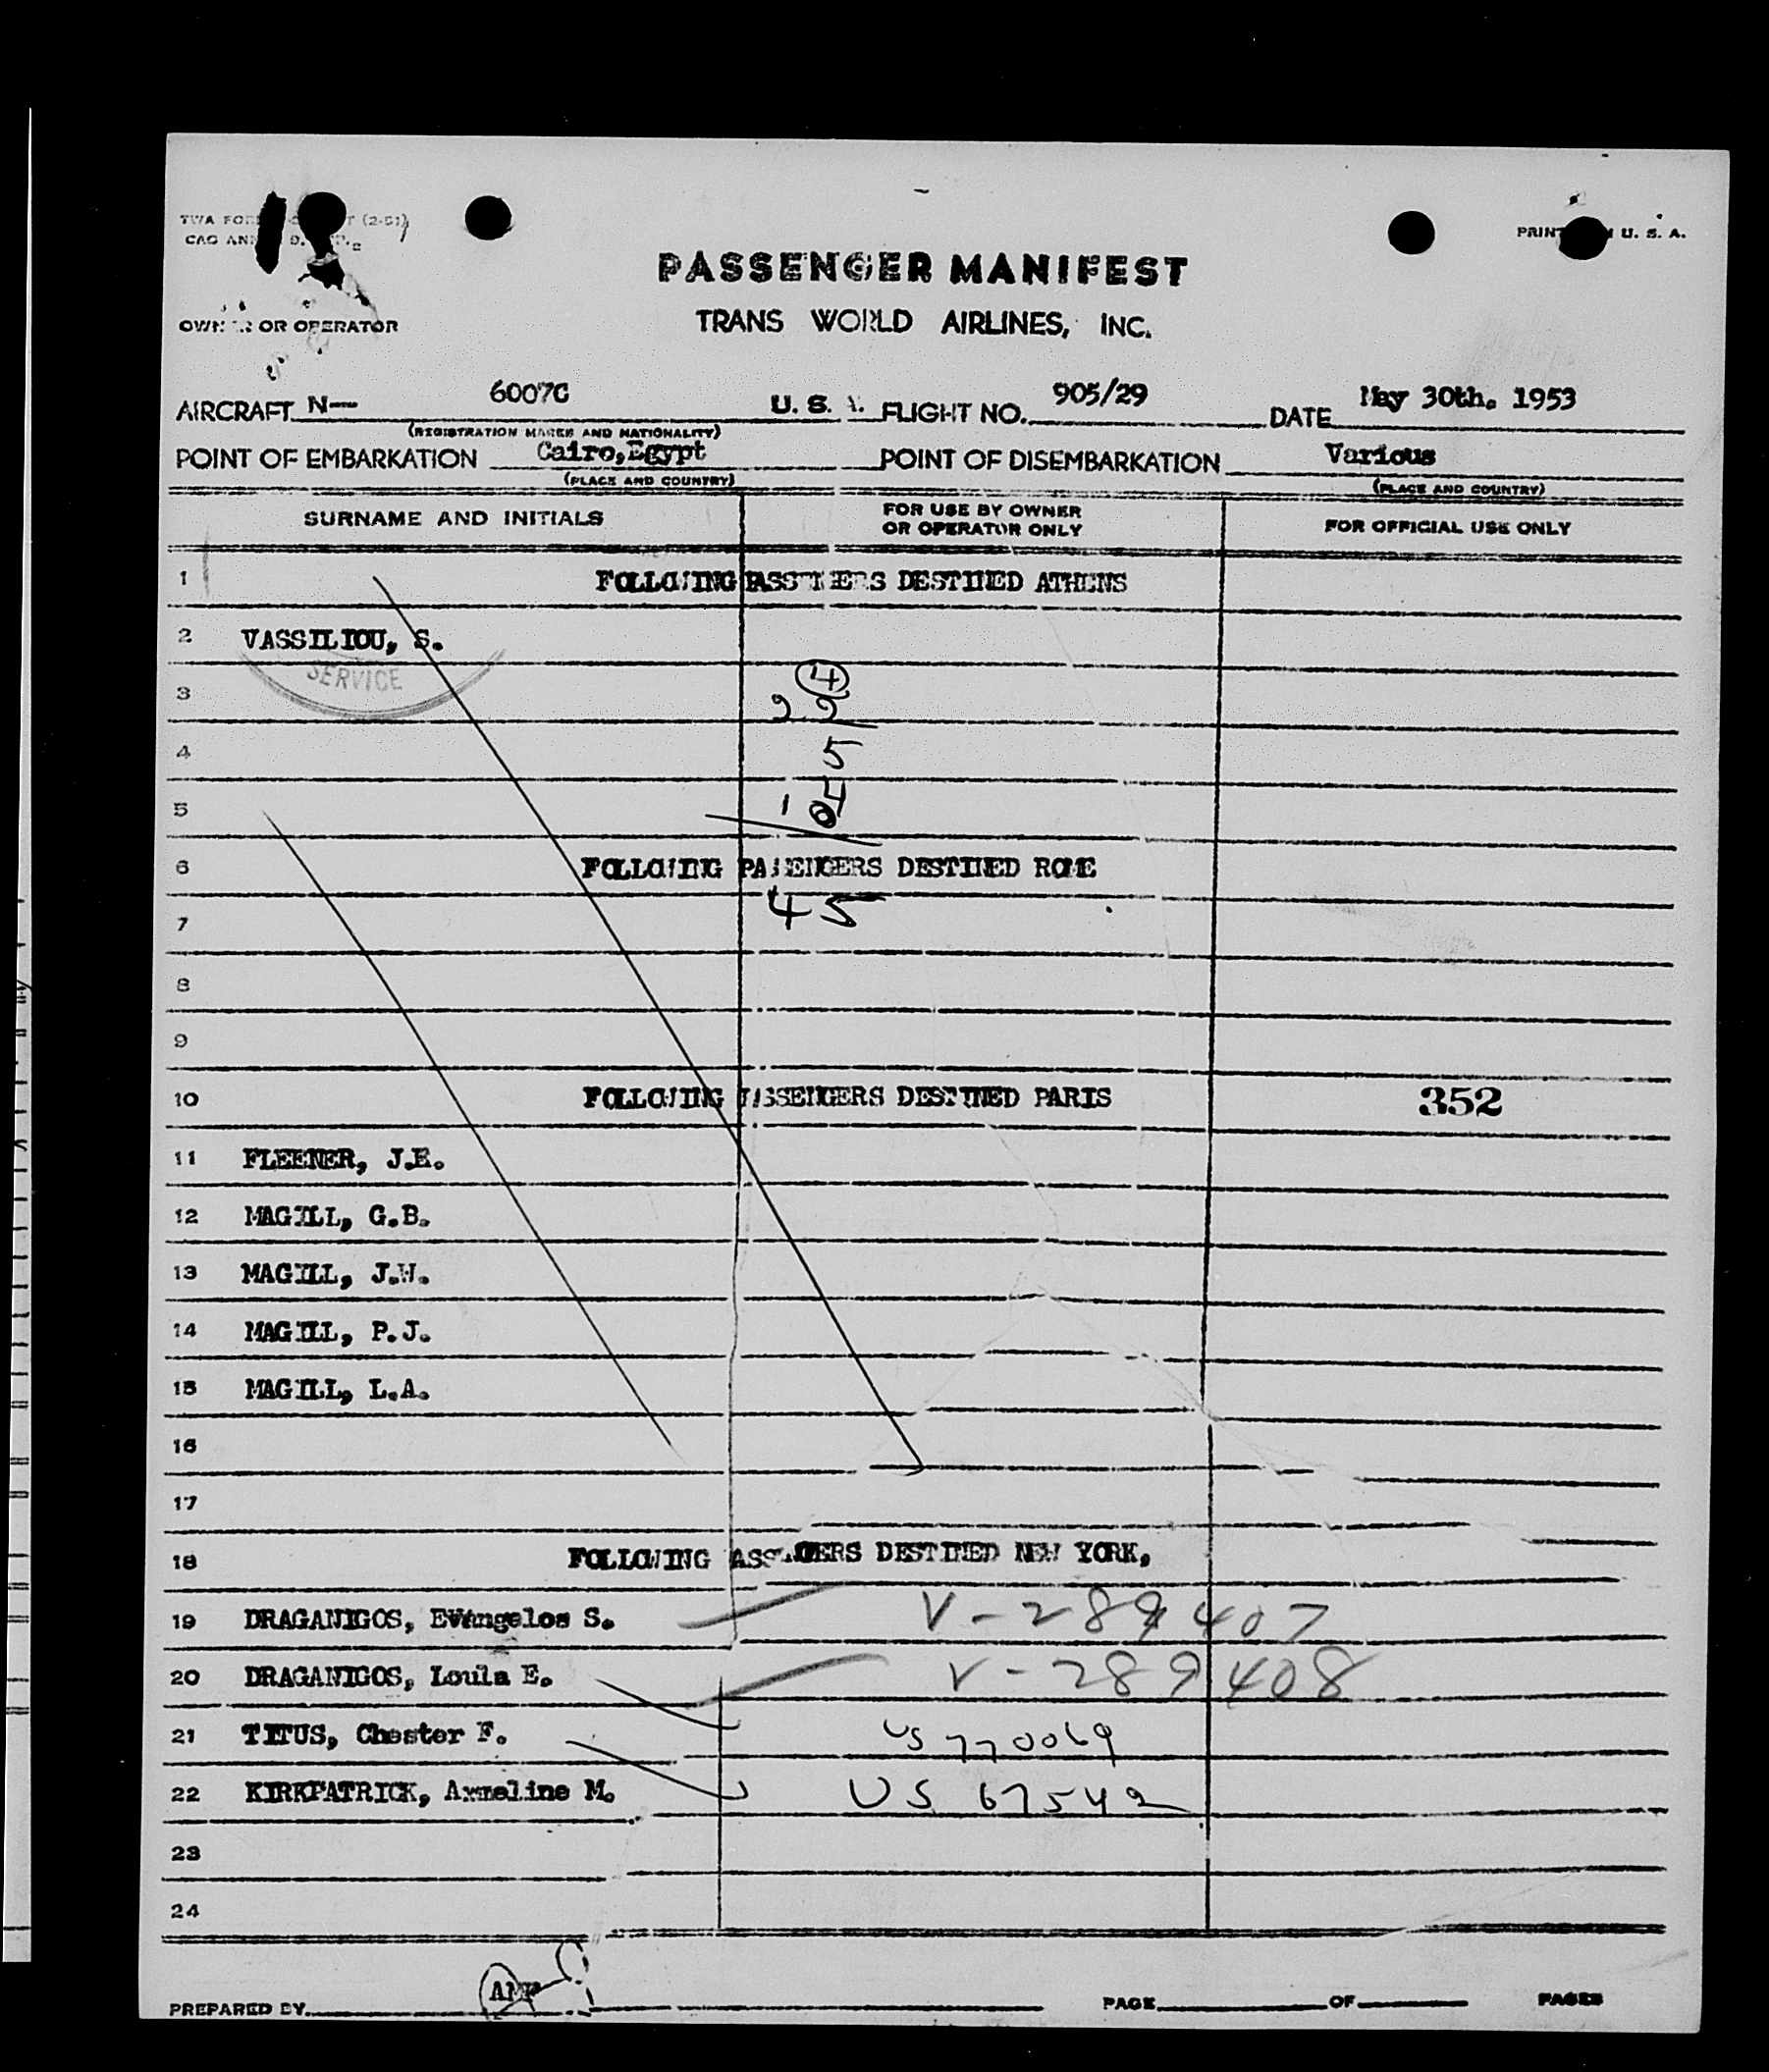 TWA FOR (2-51)
CAO ANN 9.
PRINT U. S. A.
PASSENGER MANIFEST
OWNER OR OPERATOR
TRANS WORLD AIRLINES, INC.
AIRCRAFT N— 6007C U. S. A. FLIGHT NO. 905/29 DATE May 30th. 1953
(REGISTRATION MARKS AND NATIONALITY)
POINT OF EMBARKATION Cairo,Egypt POINT OF DISEMBARKATION Various
(PLACE AND COUNTRY) (PLACE AND COUNTRY)
SURNAME AND INITIALS FOR USE BY OWNER OR OPERATOR ONLY FOR OFFICIAL USE ONLY
1 FOLLOWING PASSENGERS DESTINED ATHENS
2 VASSILIOU, S.
SERVICE
4
3 22
4 5
5 1
6 FOLLOWING PASSENGERS DESTINED ROME
7 45
8
9
10 FOLLOWING PASSENGERS DESTINED PARIS 352
11 FLEENER, J.E.
12 MAGILL, G.B.
13 MAGILL, J.W.
14 MAGILL, P.J.
15 MAGILL, L.A.
16
17
18 FOLLOWING PASSENGERS DESTINED NEW YORK,
19 DRAGANIGOS, Evangelos S. V-289407
20 DRAGANIGOS, Loula E. V-289408
21 TITUS, Chester F. US 770069
22 KIRKPATRICK, Armeline M. US 67542
23
24
PREPARED BY AMP PAGE OF PAGES